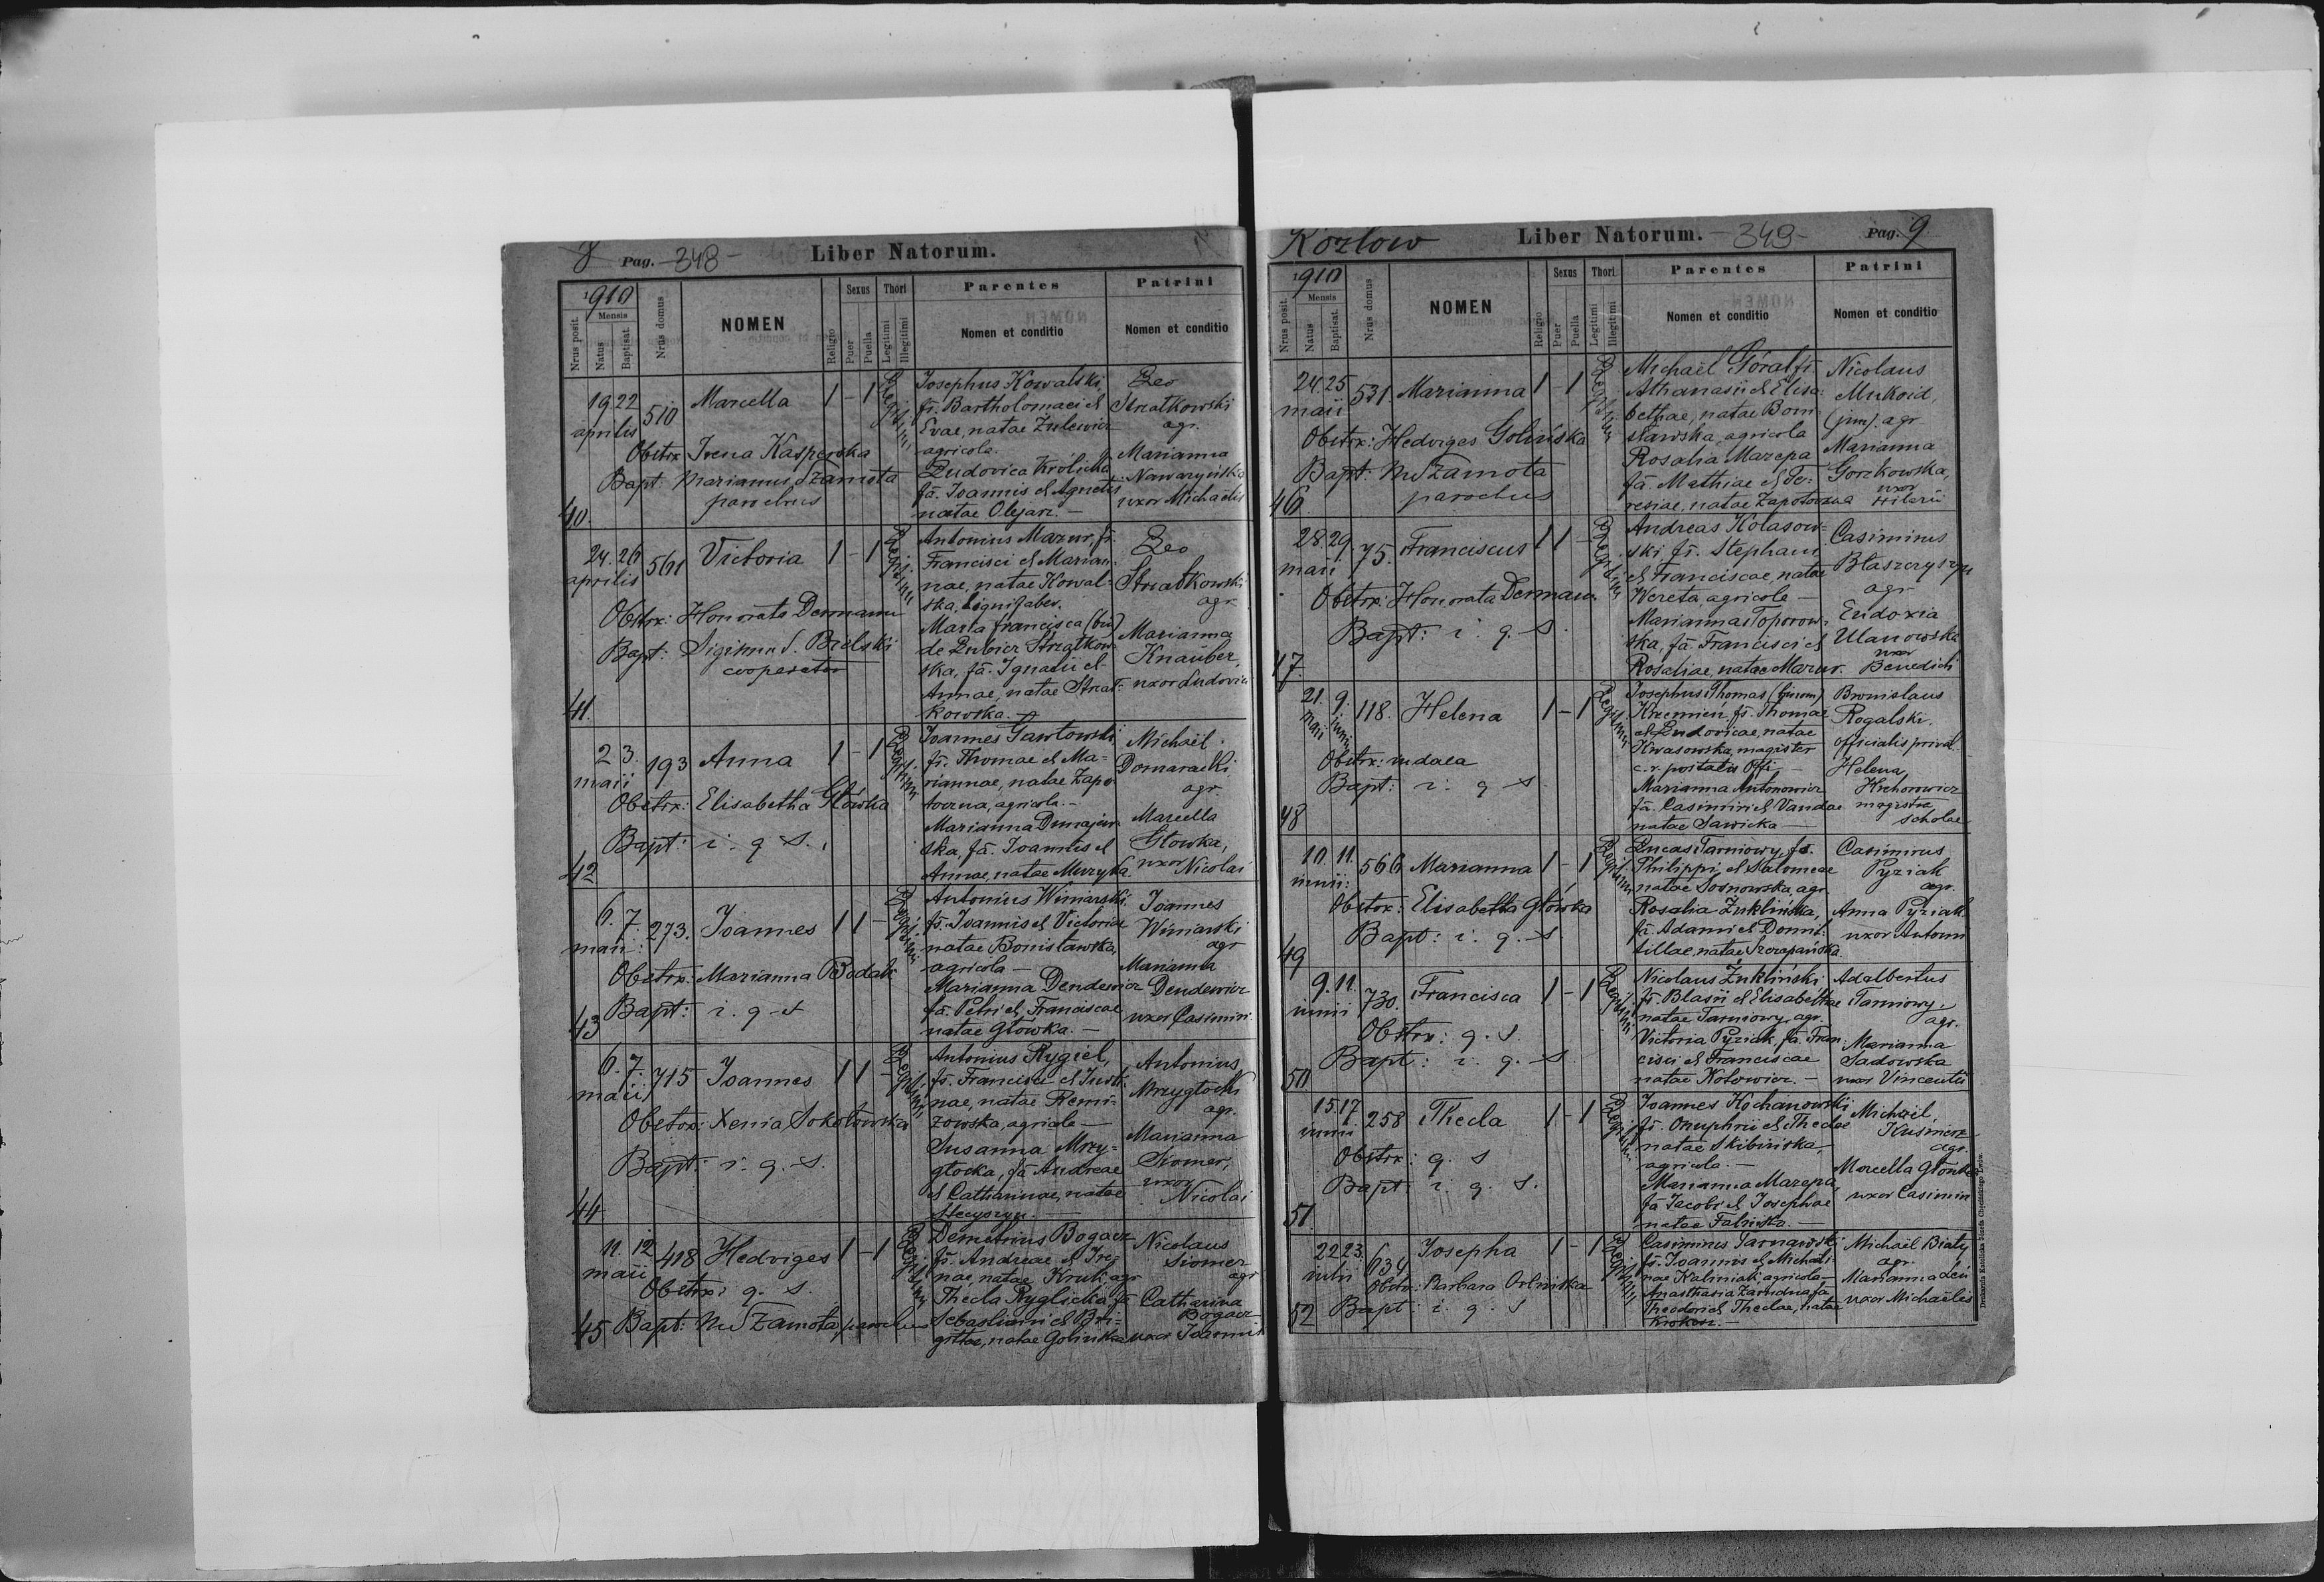 8 Pag. -348-
Liber Natorum.
1910
Nrus posit.
Mensis
Natus
Baptisat.
Nrus domus
NOMEN
Religio
Sexus
Puer
Puella
Thori
Legitimi
Illegitimi
Parentes
Nomen et conditio
Patrini
Nomen et conditio
40.
19 22
aprilis
510
Marcella
1 - 1
Legitimi
Obstrx Irena Kasperska
Bapt: Marianus Szamota
parochus
Josephus Kowalski,
fs. Bartholomaei et
Evae, natae Zulewicz
agricola.
Ludovica Królicka
fa. Joannis et Agnetis
natae Olejarz. -
Leo
Strzatkowski
agr.
Marianna
Nawaryńska
uxor Michaëlis
41.
24. 26
aprilis
561
Victoria
1 - 1
Legitimi
Obstrx: Honorata Dermann
Bapt: Sigismund. Bielski
cooperator
Antonius Mazur, fs.
Francisci et Marian
nae, natae Kowal-
ska, lignifaber.
Maria Francisca (bin)
de Lubicz Strzatkow-
ska, fa. Ignatii et
Annae, natae Strzat-
kowska. -
Leo
Strzatkowski
agr.
Marianna
Knauber,
uxor Ludovici
42
2 3.
maii
193
Anna
1 - 1
Legitimi
Obstrx: Elisabetha Główka
Bapt: i. q. s.
Joannes Gawłowski
fs. Thomae et Ma-
riannae, natae Zapo
toczna, agricola. -
Marianna Dunajew-
ska, fa. Joannis et
Annae, natae Muzyka.
Michaël
Domaracki
agr.
Marcella
Głowka,
uxor Nicolai
43
6. 7.
maii
273.
Joannes
1 1 -
Legitimi
Obstrx: Marianna Bodak
Bapt: i. q. s
Antonius Winiarski
fs. Joannis et Victoriae
natae Bonisławska,
agricola -
Marianna Dendewicz
fa. Petri et Franciscae
natae Głowka. -
Joannes
Winiarski
agr
Marianna
Dendewicz
uxor Casimiri
44
6. 7.
maii
715
Joannes
1 1 -
Legitimi
Obstrx: Xenia Sokołowska
Bapt: i. q. s.
Antonius Rygiel,
fs. Francisci et Justi-
nae, natae Remi-
zowska, agricola -
Susanna Mrzy-
głocka, fa Andreae
et Catharinae, natae
Stecyszyn. -
Antonius
Mrzygłocki
agr.
Marianna
Siomer,
uxor
Nicolai
45
11. 12
maii
418
Hedviges
1 - 1
Legitimi
Obstrx: q. s.
Bapt: M Szamota parochus
Demetrius Bogacz
fs. Andreae et Ire
nae, natae Kruk, agr
Thecla Ryglicka fa
Sebastiani et Bri-
gittae, natae Golińska
Nicolaus
Siomer
agr
Catharina
Bogacz
uxor Joannis
Kozłow
Liber Natorum. -349-
Pag. 9
1910
Nrus posit.
Mensis
Natus
Baptisat.
Nrus domus
NOMEN
Religio
Sexus
Puer
Puella
Thori
Legitimi
Illegitimi
Parentes
Nomen et conditio
Patrini
Nomen et conditio
46
24. 25
maii
531
Marianna
1 - 1
Legitimi
Obstrx: Hedviges Golińska
Bapt: M Szamota
parochus
Michaël Góral fs.
Athanasii et Elisa-
bethae, natae Boni-
sławska, agricola
Rosalia Mazepa
fa. Mathiae et Te-
resiae, natae Zapotoczna
Nicolaus
Mukoid,
(jun). agr
Marianna
Gorzkowska,
uxor
Hilarii
47.
28. 29.
maii
75.
Franciscus
1 1 -
Legitimi
Obstrx: Honorata Dermann.
Bapt: i. q. s.
Andreas Kolasow-
ski fs. Stephani
et Franciscae, natae
Wereta, agricola -
Marianna Toporow-
ska, fa. Francisci et
Rosaliae, natae Mazur.
Casimirus
Błaszczyszyn
agr
Eudoxia
Ulanowska
uxor
Benedicti
48
21. 9.
maii junii
118.
Helena
1 - 1
Legitimi
Obstrx: iudaea
Bapt: i. q s
Josephus Thomas (binom)
Krzemień fs. Thomae
et Ludovicae, natae
Kwasowska, magister
c. r. postalis Offi. -
Marianna Antonowicz
fa. Casimiri et Vandae
natae Sawicka -
Bronislaus
Rogalski.
officialis privat.
Helena
Krehorowicz
magistra
scholae
49
10. 11.
iunii:
566
Marianna
1 - 1
Legitimi
Obstrx: Elisabetha Główka
Bapt: i. q. s.
Lucas Tarnowy, fs.
Philippi et Salomeae
natae Sosnowska, agr.
Rosalia Żuklińska,
fa. Adami et Domi-
tillae, natae Szczepańska.
Casimirus
Pyziak
agr.
Anna Pyziak
uxor Antonii
50
9. 11.
iunii
730.
Francisca
1 - 1
Legitimi
Obstrx: q. s.
Bapt: i. q. s.
Nicolaus Żukliński,
fs. Blasii et Elisabethae
natae Tarnowy, agr.
Victoria Pyziak, fa. Fran-
cisci et Franciscae
natae Kotowicz. -
Adalbertus
Tarnowy.
agr.
Marianna
Sadowska
uxor Vincentii
51
15. 17.
iunii
258
Thecla
1 - 1
Legitimi
Obstrx: q. s
Bapt: i. q. s.
Joannes Kochanowski
fs. Onuphrii et Theclae
natae Skibińska,
agricola. -
Marianna Mazepa,
fa Jacobi et Josephae
natae Falińska. -
Michaël
Kuśnierz
agr.
Marcella Główka
uxor Casimiri
52
22 23.
634
Josepha
1 - 1
Legitimi
Obstrx: Barbara Orlińska
Bapt: i. q. s
Casimirus Tarnawski
fs. Joannis et Michali-
nae Kaliniak, agricola -
Anasthasia Zarudna fa
Theodori et Theclae, natae
Krokosz. -
Michaël Biały
agr.
Marianna Leń
uxor Michaëlis
Drukarnia Katolicka Józefa Chęcińskiego Lwów